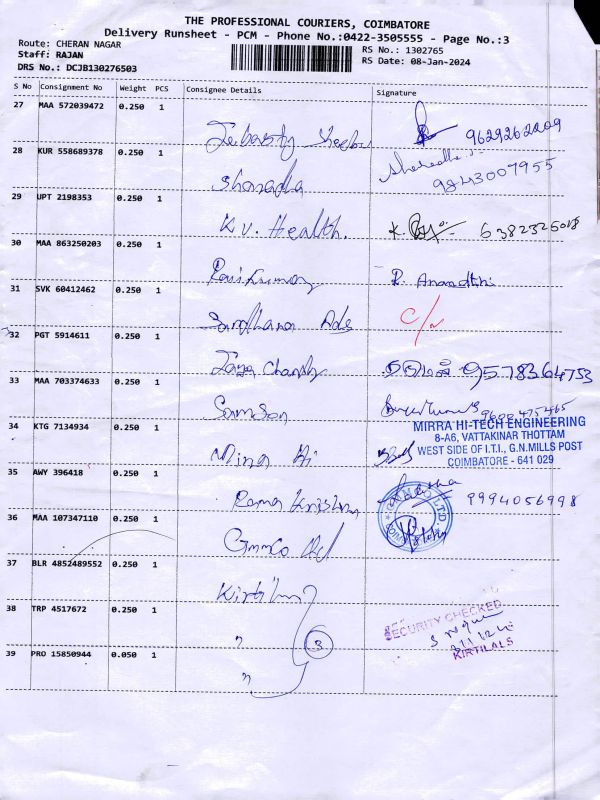 THE PROFESSIONAL COURIERS, COIMBATORE
Delivery Runsheet - PCM - Phone No.:0422-3505555 - Page No.:3
Route: CHERAN NAGAR RS No.: 1302765
Staff: RAJAN RS Date: 08-Jan-2024
DRS No.: DCJB130276503
S No Consignment No Weight PCS Consignee Details Signature
27 MAA 572039472 0.250 1
9629262209
28 KUR 558689378 0.250 1
Sharadha 9843007955
29 UPT 2198353 0.250 1
K.V. Health. 6382326018
30 MAA 863250203 0.250 1
Ravikumar R. Anandhi
31 SVK 60412462 0.250 1
Ads
32 PGT 5914611 0.250 1
Jaya Chandr 9578364753
33 MAA 703374633 0.250 1
Samson 9688475465
34 KTG 7134934 0.250 1
MIRRA HI-TECH ENGINEERING
8-A6, VATTAKINAR THOTTAM
WEST SIDE OF I.T.I., G.N.MILLS POST
COIMBATORE - 641 029
Mirra Hi
35 AWY 396418 0.250 1
Rama Krishna 9994056998
36 MAA 107347110 0.250 1
37 BLR 4852489552 0.250 1
Kirtilal
38 TRP 4517672 0.250 1
" 3
SECURITY CHECKED
KIRTILALS
39 PRO 15850944 0.050 1
"